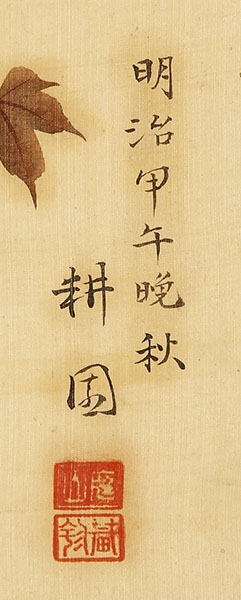 明治甲午晩秋
耕園